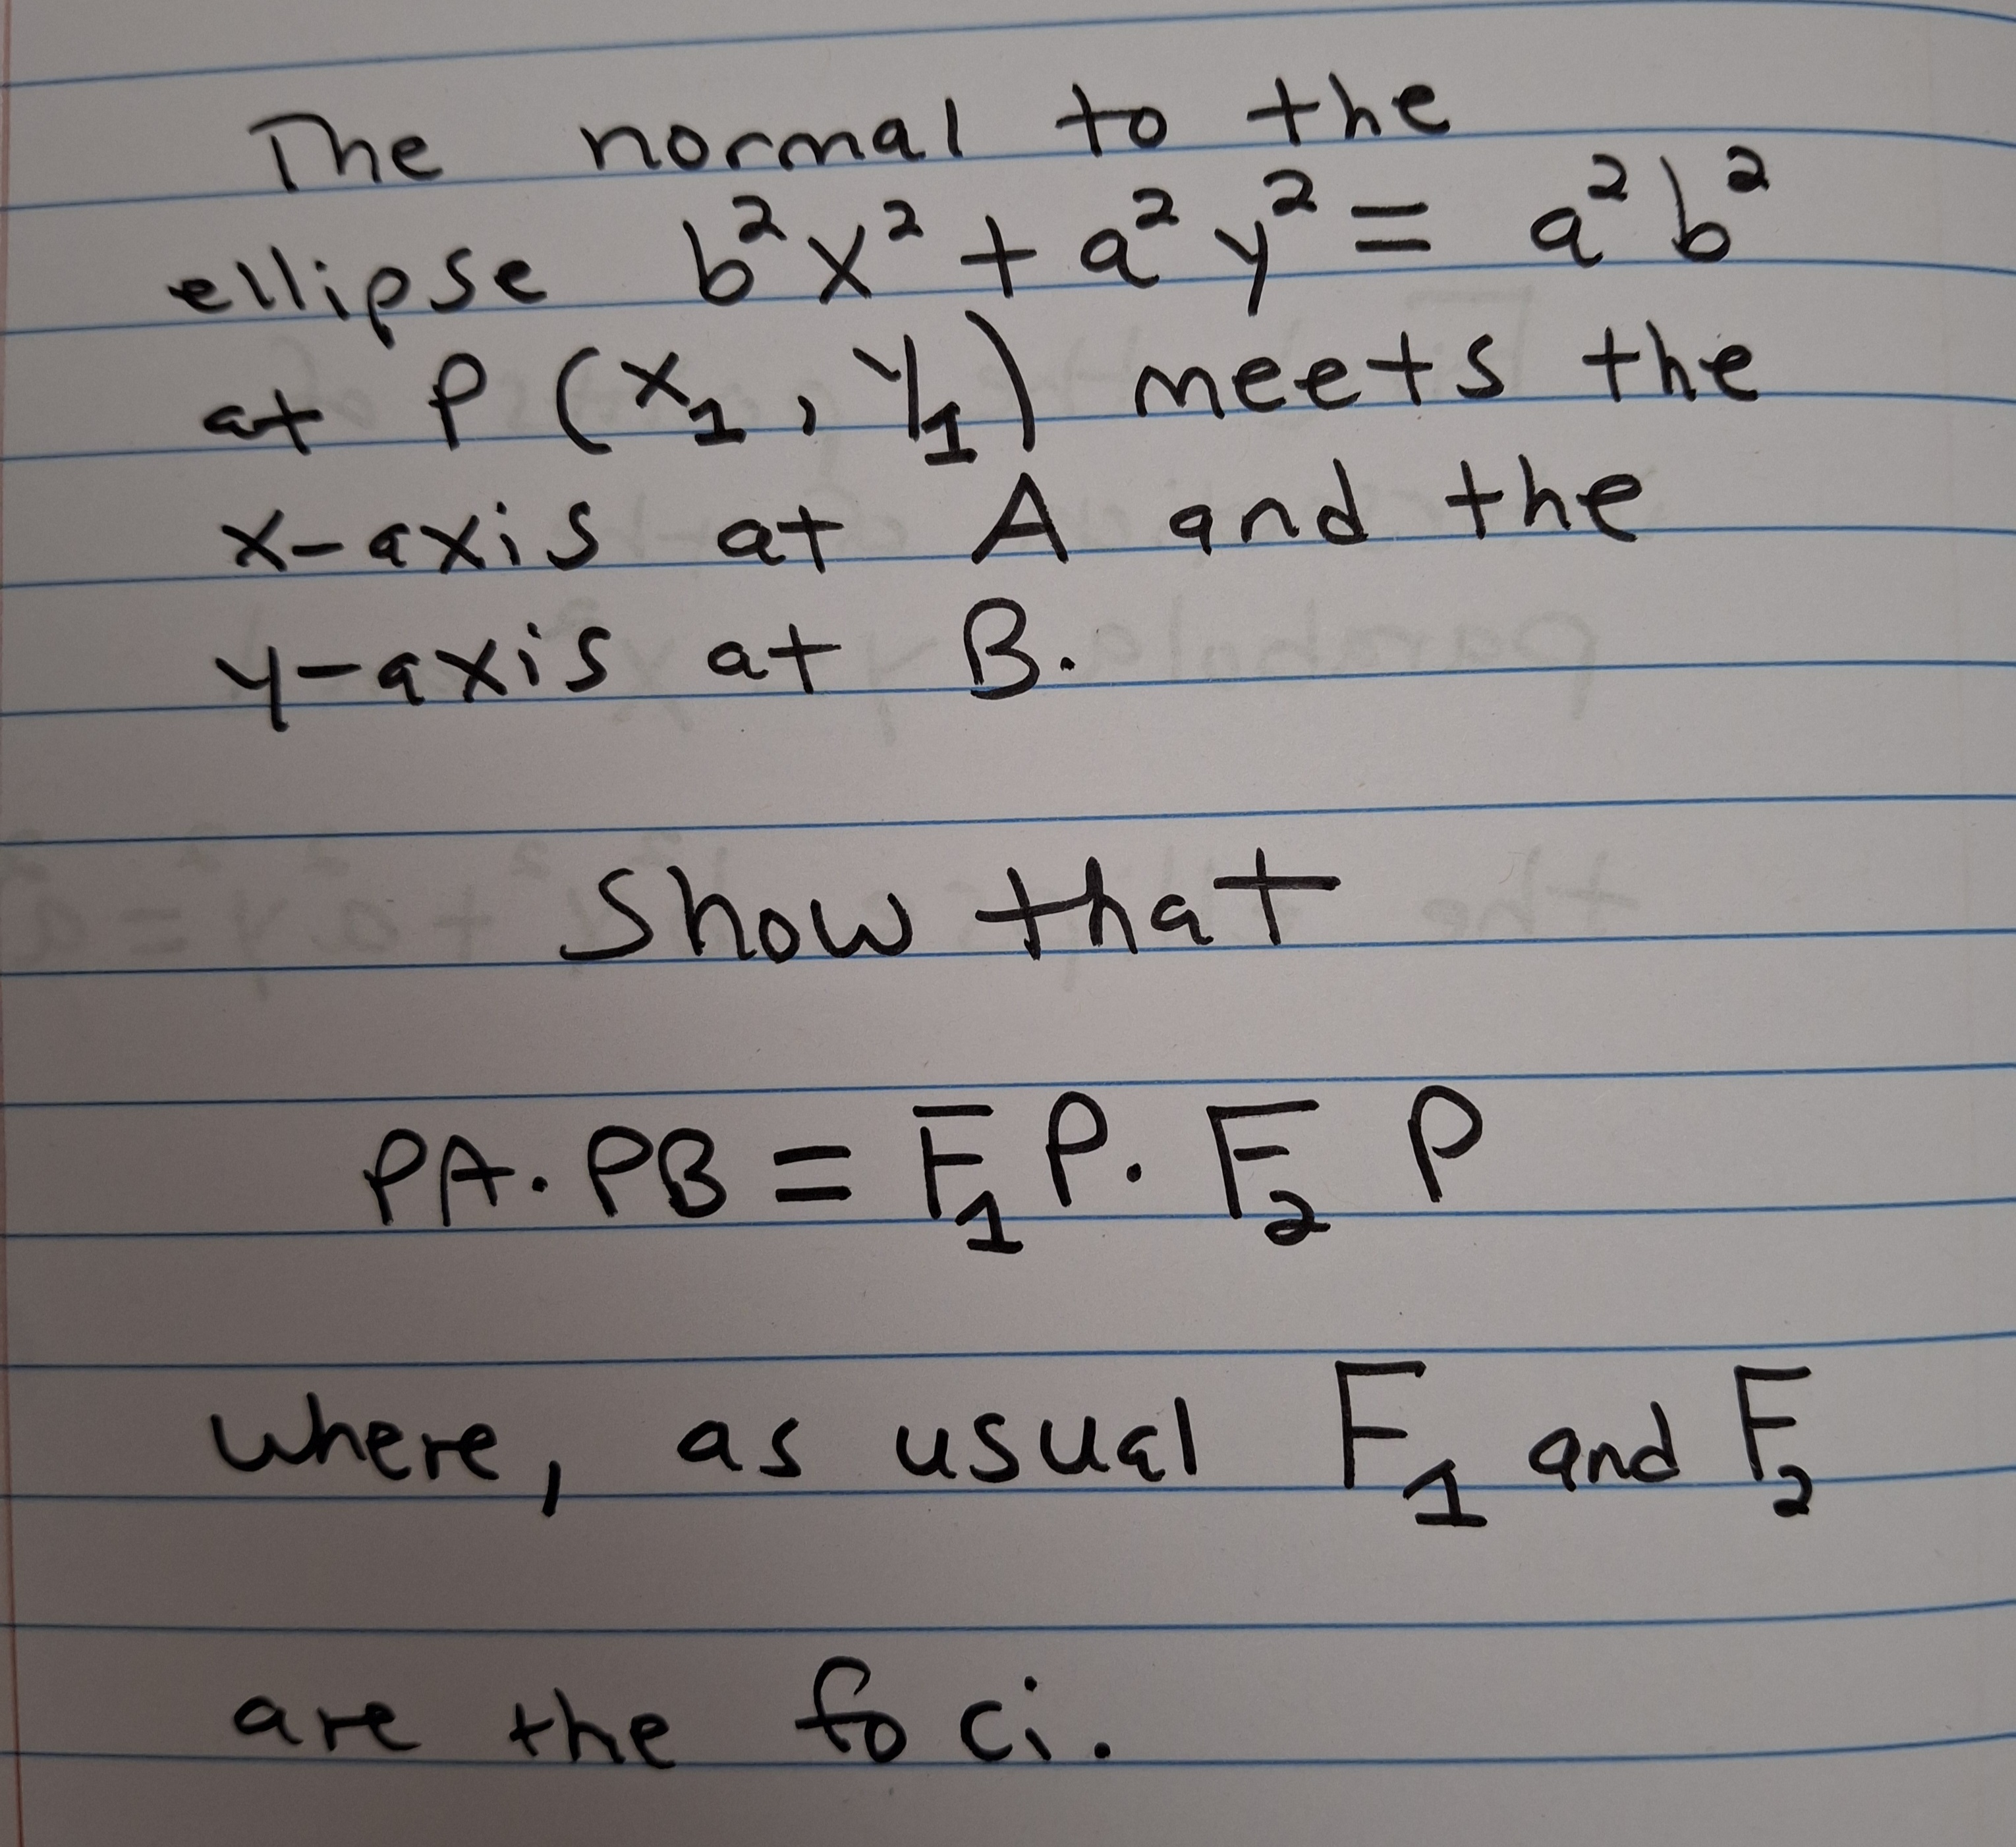 The normal to the
ellipse b²x² + a²y² = a²b²
at P (x₁, y₁) meets the
x-axis at A and the
y-axis at B.
Show that
PA. PB = F₁P. F₂ P
where, as usual F₁ and F₂
are the foci.